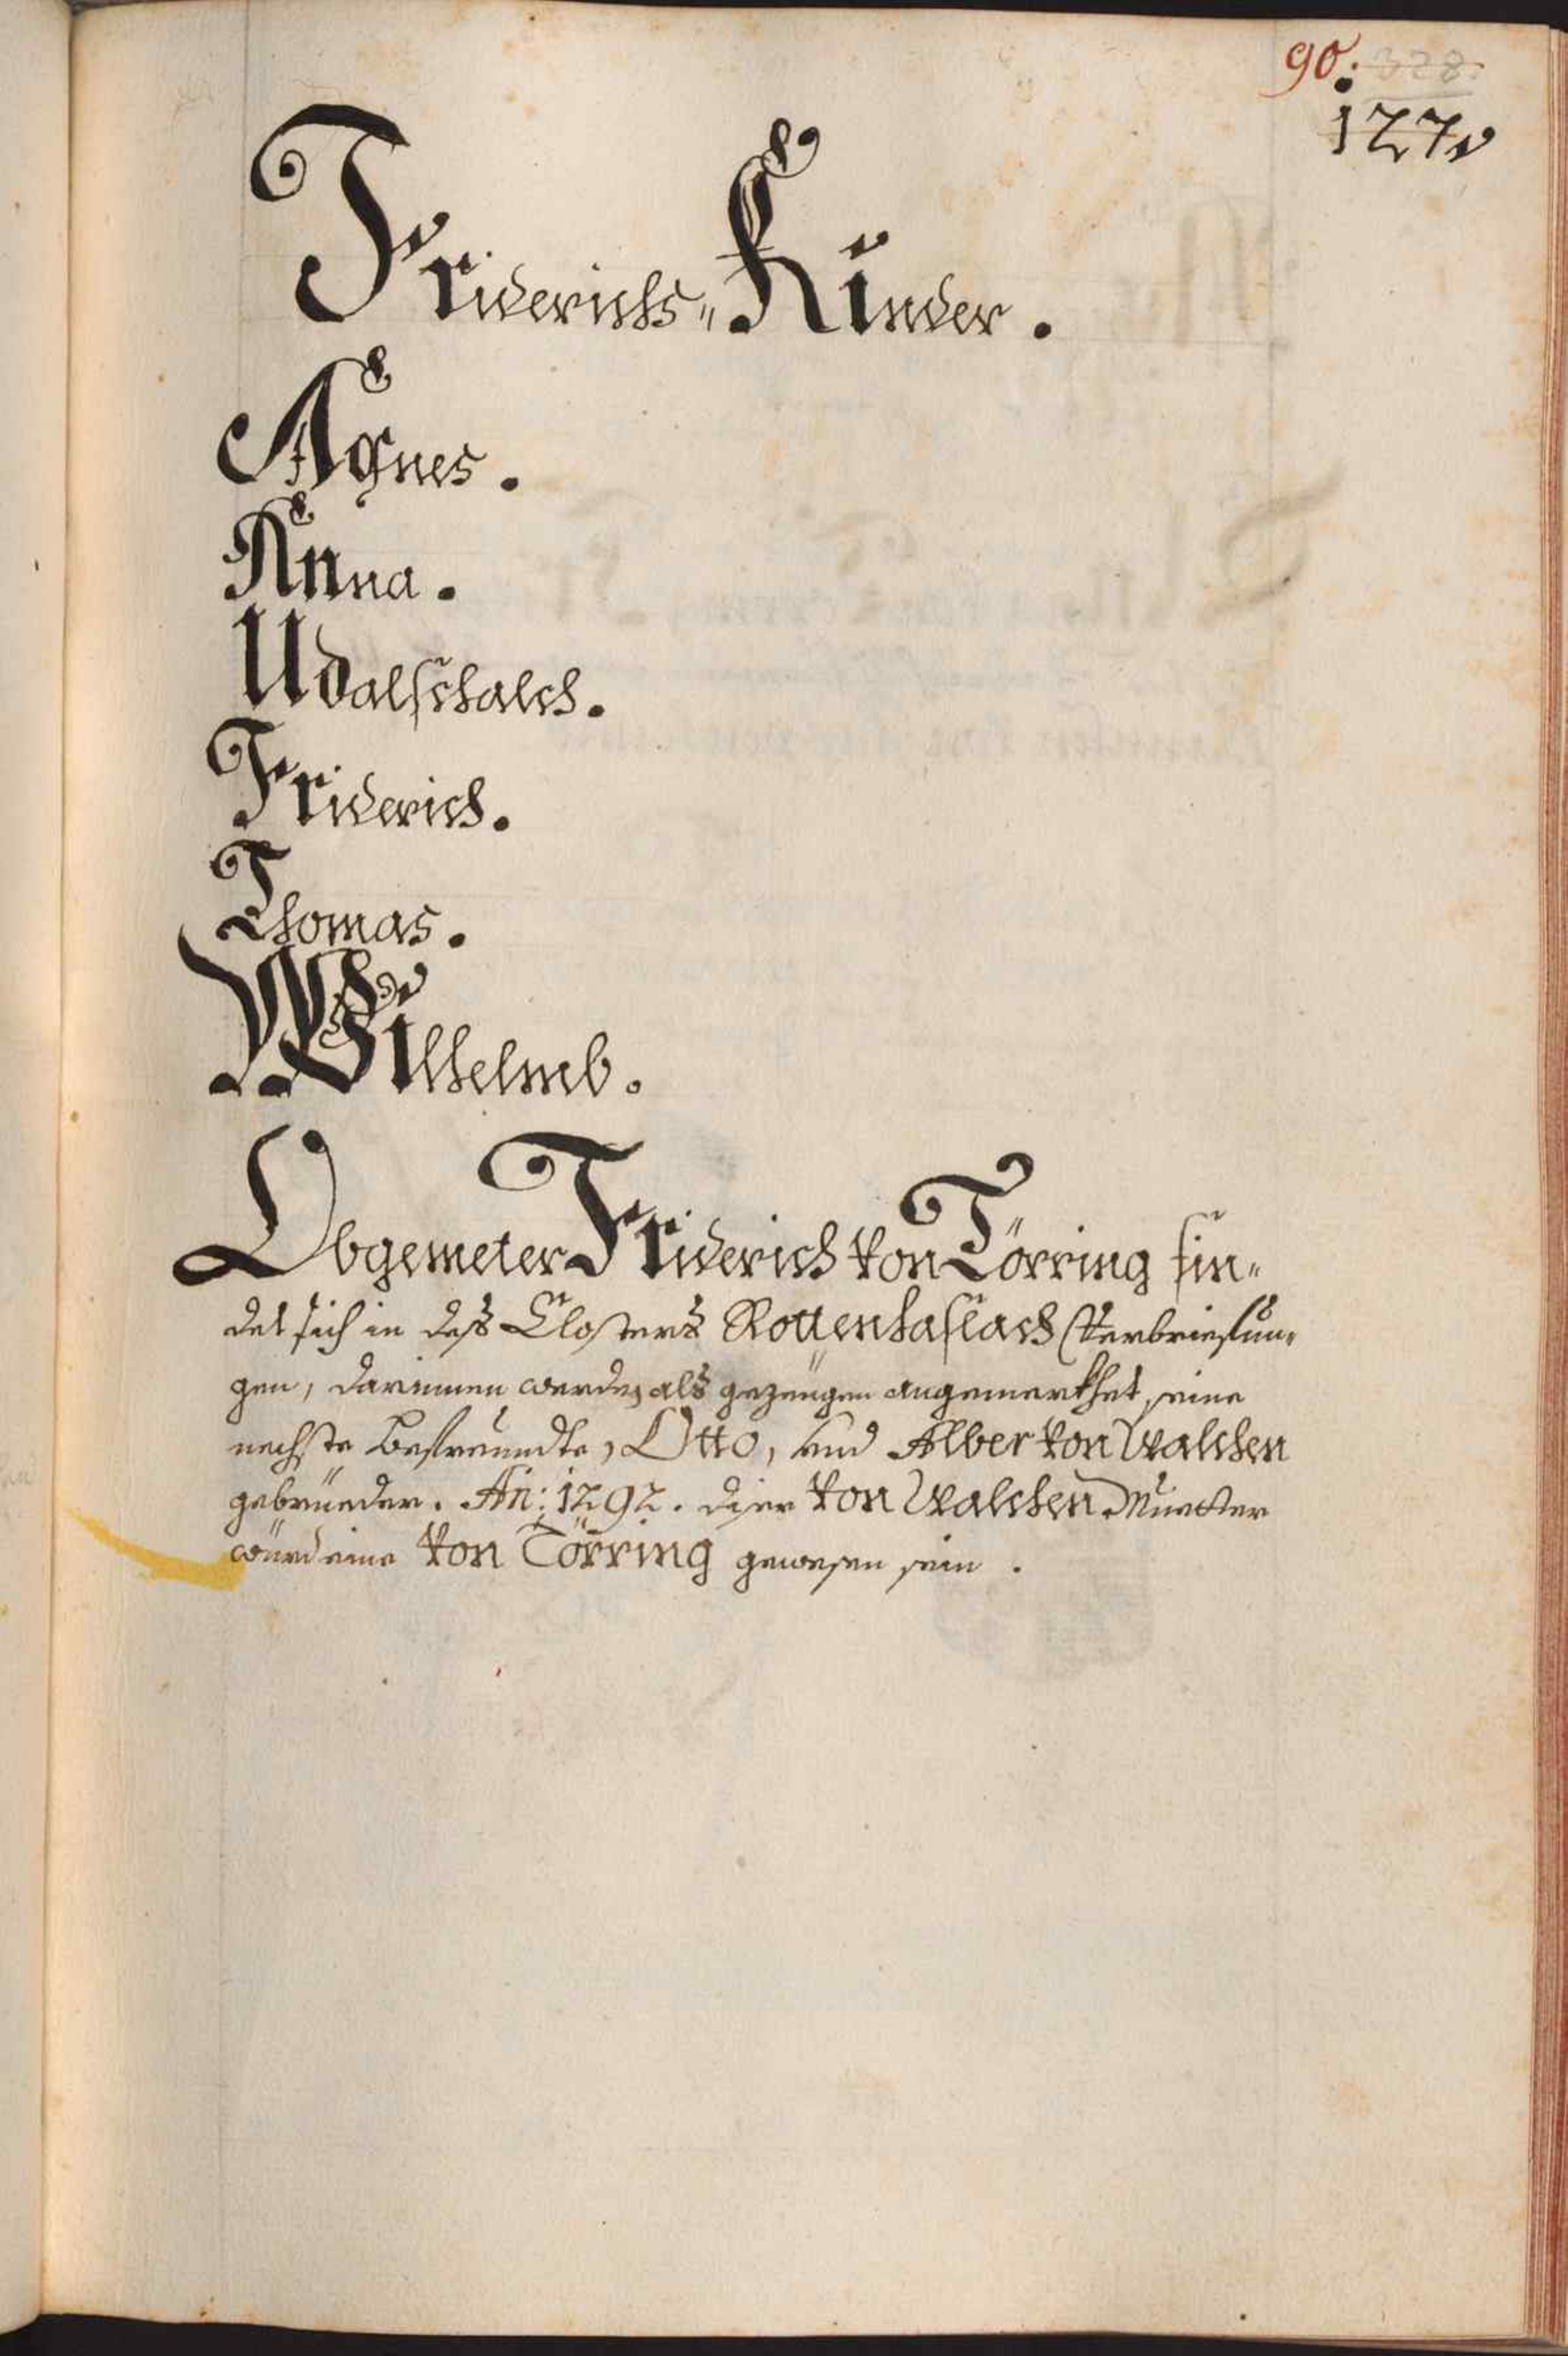 90. 328.
127.
Friderichs„ Kinder.
Agnes.
Anna.
Udalschalch.
Friderich.
Thomas.
Wilhelmb.
Obgemelter Friderich von Törring fin„
det sich in deß Closters Rottenhaslach Verbriefun„
gen, darinnen werden als gezeugen angemerkhet, seine
nechste befreundte, Otto, und Alber von Walchen
gebrüeder. An: 1292. diser von Walchen Muetter
würd eine von Törring gewesen sein.